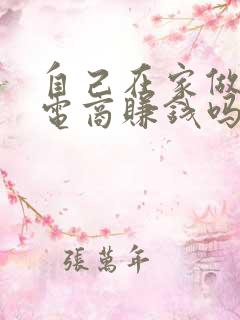 自己在家做
电商赚钱吗
張萬年